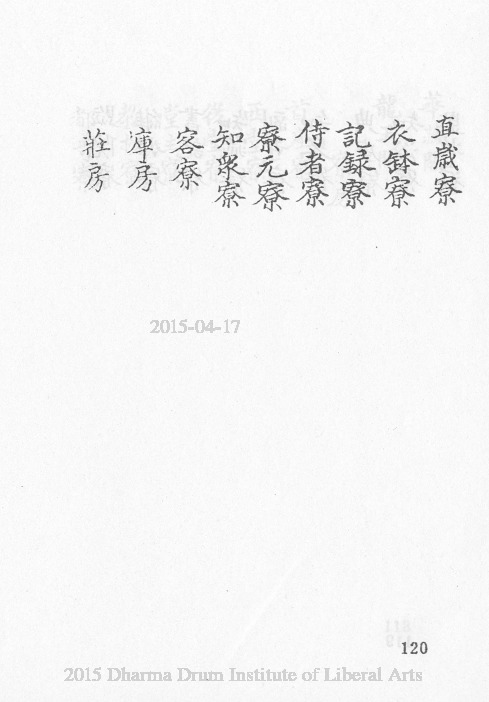 直歳寮
衣鉢寮
記録寮
侍者寮
寮元寮
知衆寮
客寮
庫房
莊房
2015-04-17
120
2015 Dharma Drum Institute of Liberal Arts